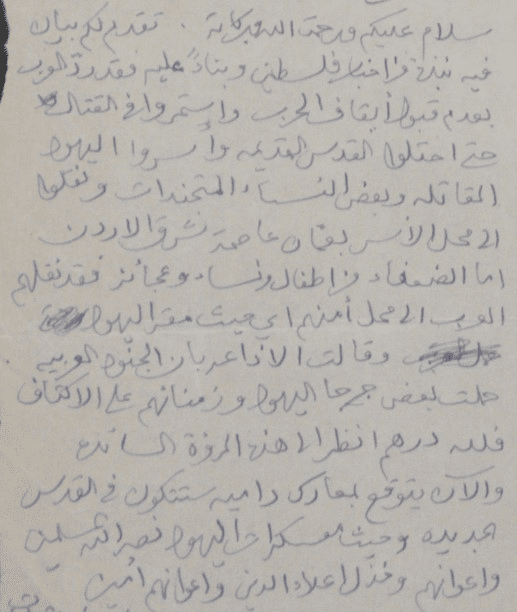 سلام عليكم ورحمت الله وبركاته . تقدم لكم بيان
فيه نبذة من اخبار فلسطين وبناءً عليه فقد رد العرب
بعدم قبول أيقاف الحرب واستمروا في القتال
حتى احتلوا القدس القديمه وأسروا اليهود
المقاتله وبعض النساء المتجندات ونقلوا
الى محل الأسر بعمان عاصمة شرق الاردن
اما الضعفاء من اطفال ونساء وعجائز فقد نقلهم
العرب الى محل أمنهم اي حيث مقر اليهود
وقالت الاذاعه بان الجنود العربيه
حملت بعض جرحا اليهود وزمناتهم على الاكتاف
فلله درهم انظر الى هذه المروة
والآن يتوقع بمعارك داميه ستكون في القدس
الجديده وحيث معسكرات اليهود نصر الله المسلمين
واعوانهم وخذل اعداء الدين واعوانهم أمين